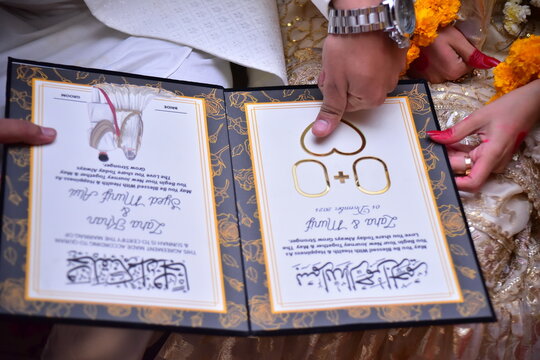 May You be
Blessed With Health & Happiness As
You Begin Your New Journey Together & May The
Love You Share Today Always Grow Stronger
Zara & Munif
01 December 2024
THIS AGREEMENT BEING ACCORDING QURAN
& SUNNAH TO CERTIFY THE MARRIAGE OF
Zara Khan
&
Syed Munif
May You be Blessed With Health & Happiness As
You Begin Your New Journey Together & May
The Love You Share Today Always
Grow Stronger.
BRIDE
GROOM